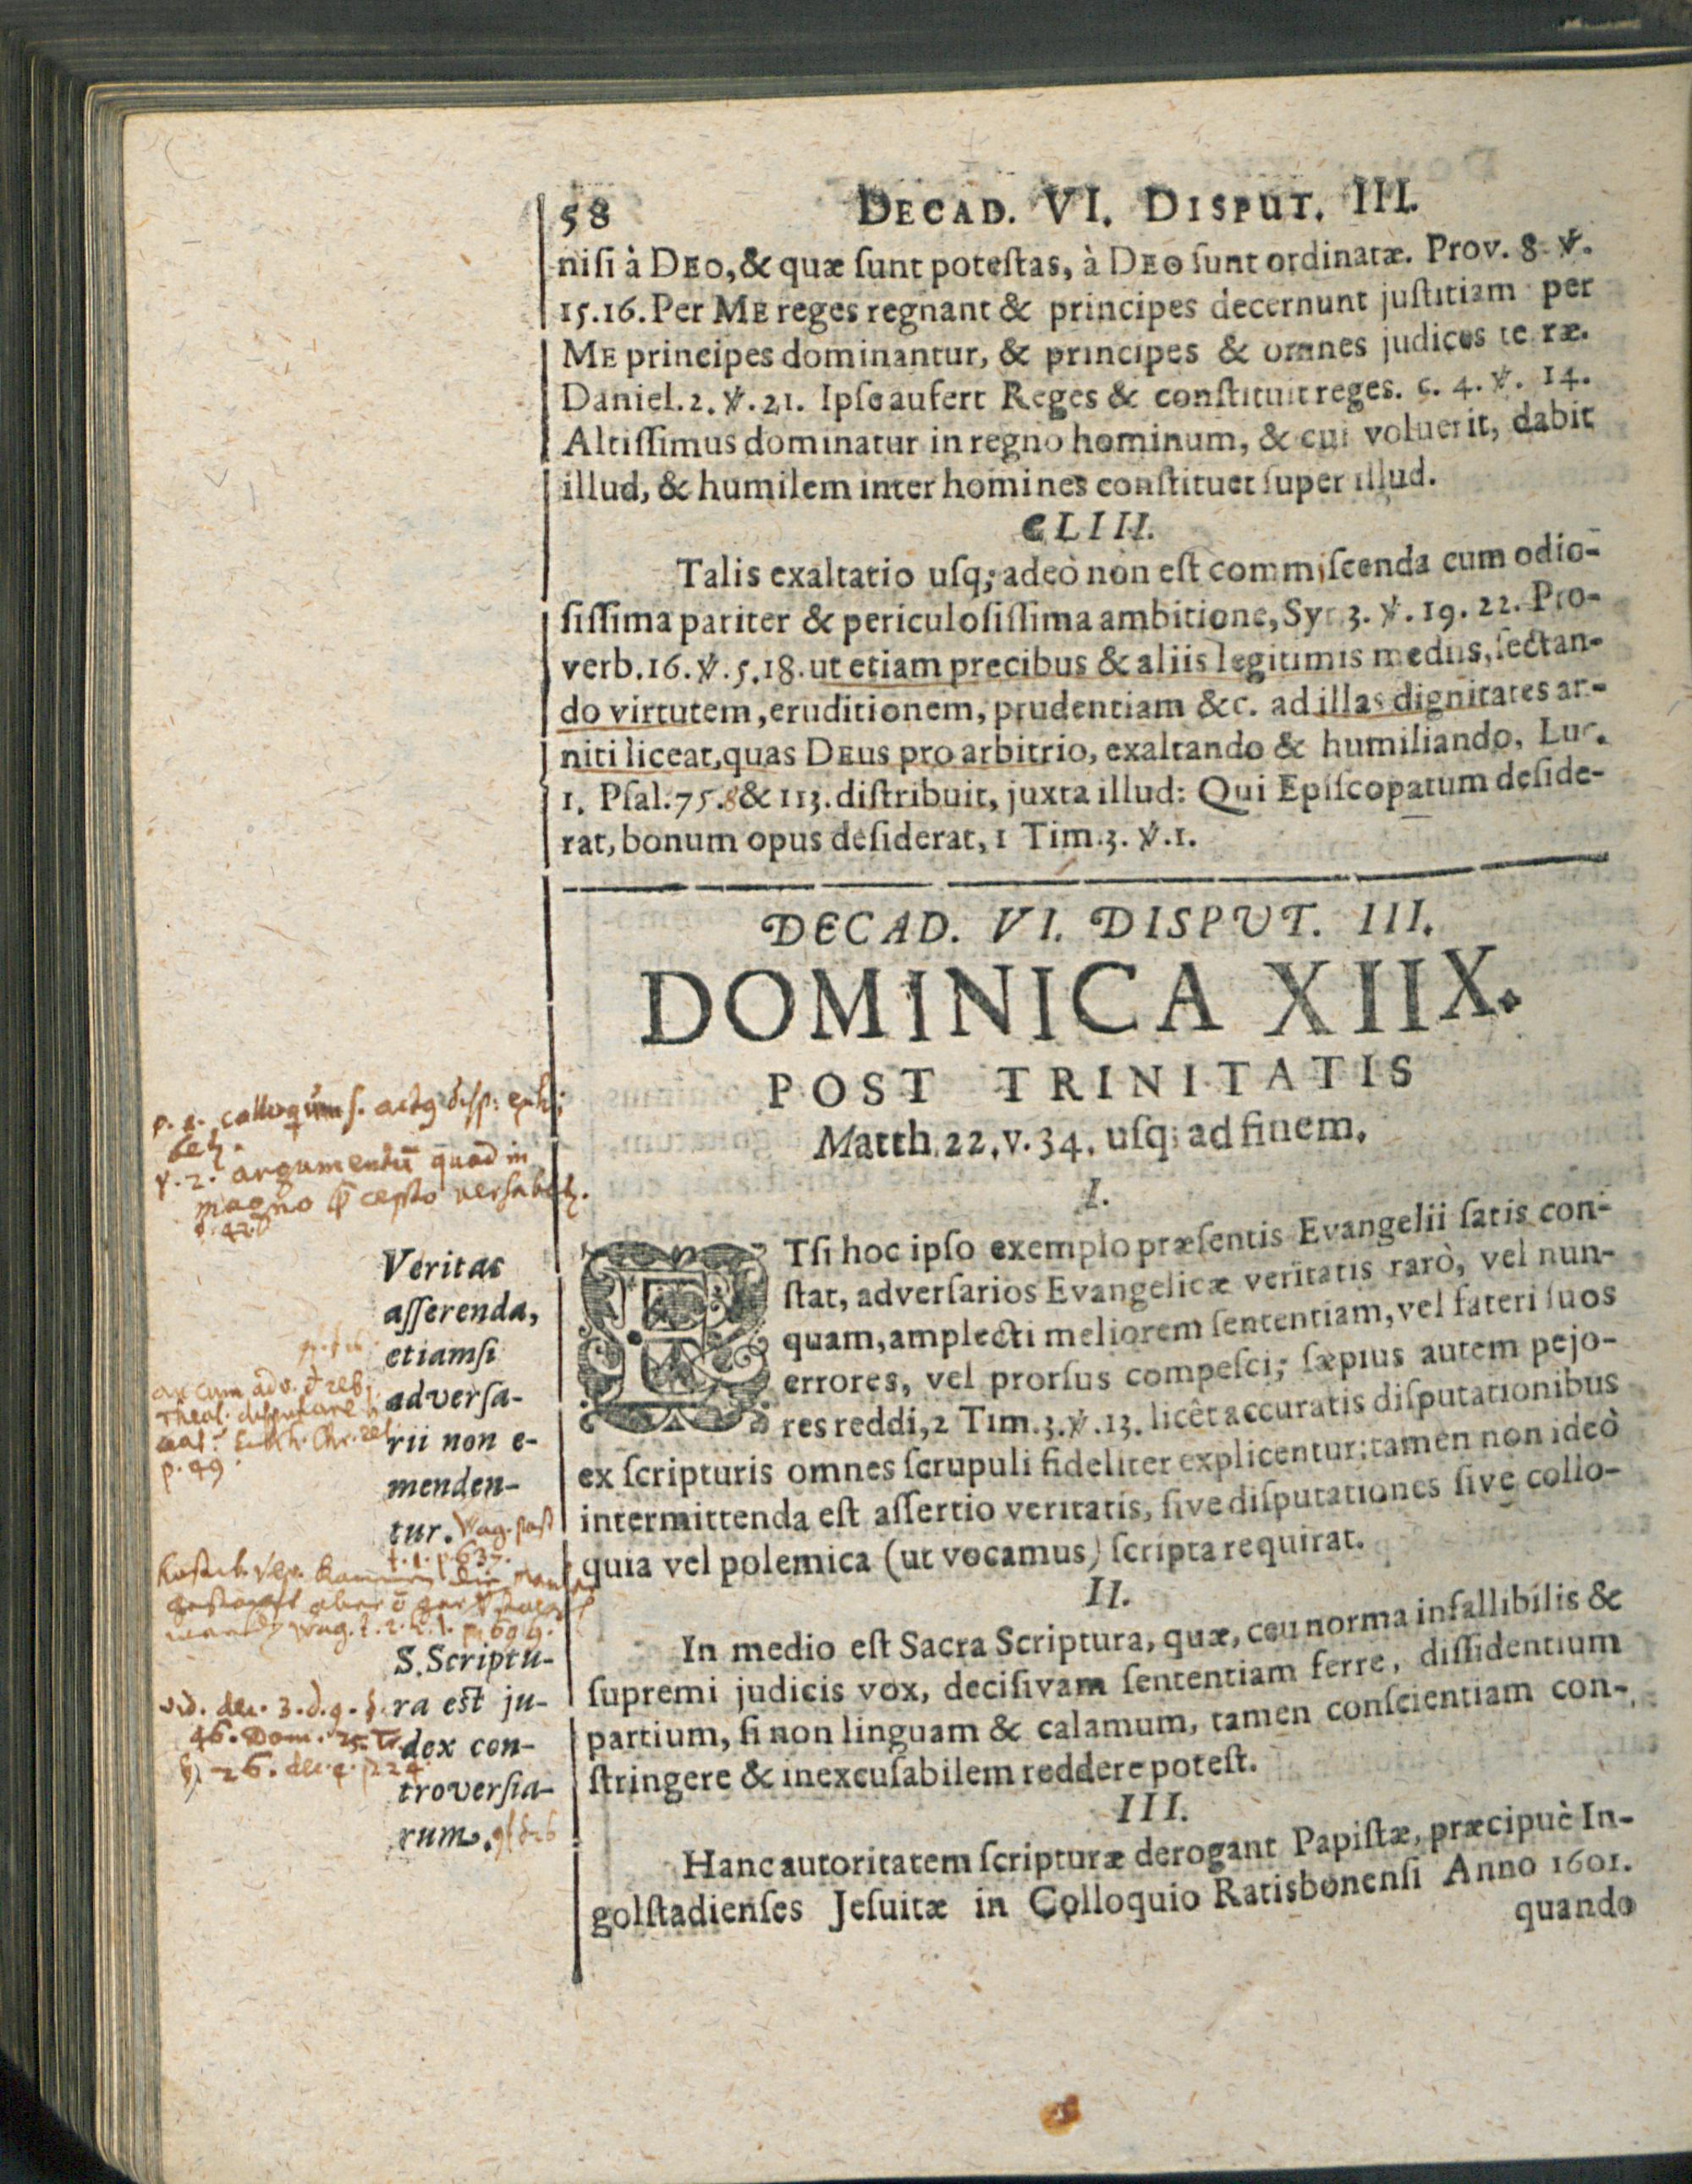 58 DECAD. VI. DISPUT. III.
niſi à DEO, & quæ ſunt poteſtas, à DEO ſunt ordinatæ. Prov. 8. ℣.
15.16. Per ME reges regnant & principes decernunt juſtitiam per
ME principes dominantur, & principes & omnes judices te ræ.
Daniel. 2. ℣. 21. Ipſe aufert Reges & conſtituit reges. c. 4. ℣. 14.
Altiſſimus dominatur in regno hominum, & cui voluerit, dabit
illud, & humilem inter homines conſtituet ſuper illud.
CLIII.
Talis exaltatio uſq; adeò non eſt commiſcenda cum odio-
ſiſſima pariter & periculoſiſſima ambitione, Syr 3. ℣. 19. 22. Pro-
verb. 16. ℣. 5. 18. ut etiam precibus & aliis legitimis mediis, ſectan-
do virtutem, eruditionem, prudentiam &c. ad illas dignitates an-
niti liceat, quas DEus pro arbitrio, exaltando & humiliando, Luc.
1. Pſal. 75. 8 & 113. diſtribuit, juxta illud: Qui Epiſcopatum deſide-
rat, bonum opus deſiderat, 1 Tim. 3. ℣. 1.
DECAD. VI. DISPVT. III.
DOMINICA XIIX.
POST TRINITATIS
Matth. 22. v. 34. uſq; ad finem.
I.
ETſi hoc ipſo exemplo præſentis Evangelii ſatis con-
ſtat, adverſarios Evangelicæ veritatis rarò, vel nun-
quam, amplecti meliorem ſententiam, vel fateri ſuos
errores, vel prorſus compeſci; ſæpius autem pejo-
res reddi, 2 Tim. 3. ℣. 13. licêt accuratis diſputationibus
ex ſcripturis omnes ſcrupuli fideliter explicentur: tamen non ideò
intermittenda eſt aſſertio veritatis, ſive diſputationes ſive collo-
quia vel polemica (ut vocamus) ſcripta requirat.
II.
In medio eſt Sacra Scriptura, quæ, ceu norma infallibilis &
ſupremi judicis vox, deciſivam ſententiam ferre, diſſidentium
partium, ſi non linguam & calamum, tamen conſcientiam con-
ſtringere & inexcuſabilem reddere poteſt.
III.
Hanc autoritatem ſcripturæ derogant Papiſtæ, præcipuè In-
golſtadienſes Jeſuitæ in Colloquio Ratisbonenſi Anno 1601.
quando
v. 2. argumentū quod in
Veritas
aſſerenda,
etiamſi
adverſa-
rii non e-
menden-
tur.
S. Scriptu-
ra eſt ju-
dex con-
troverſia-
rum.